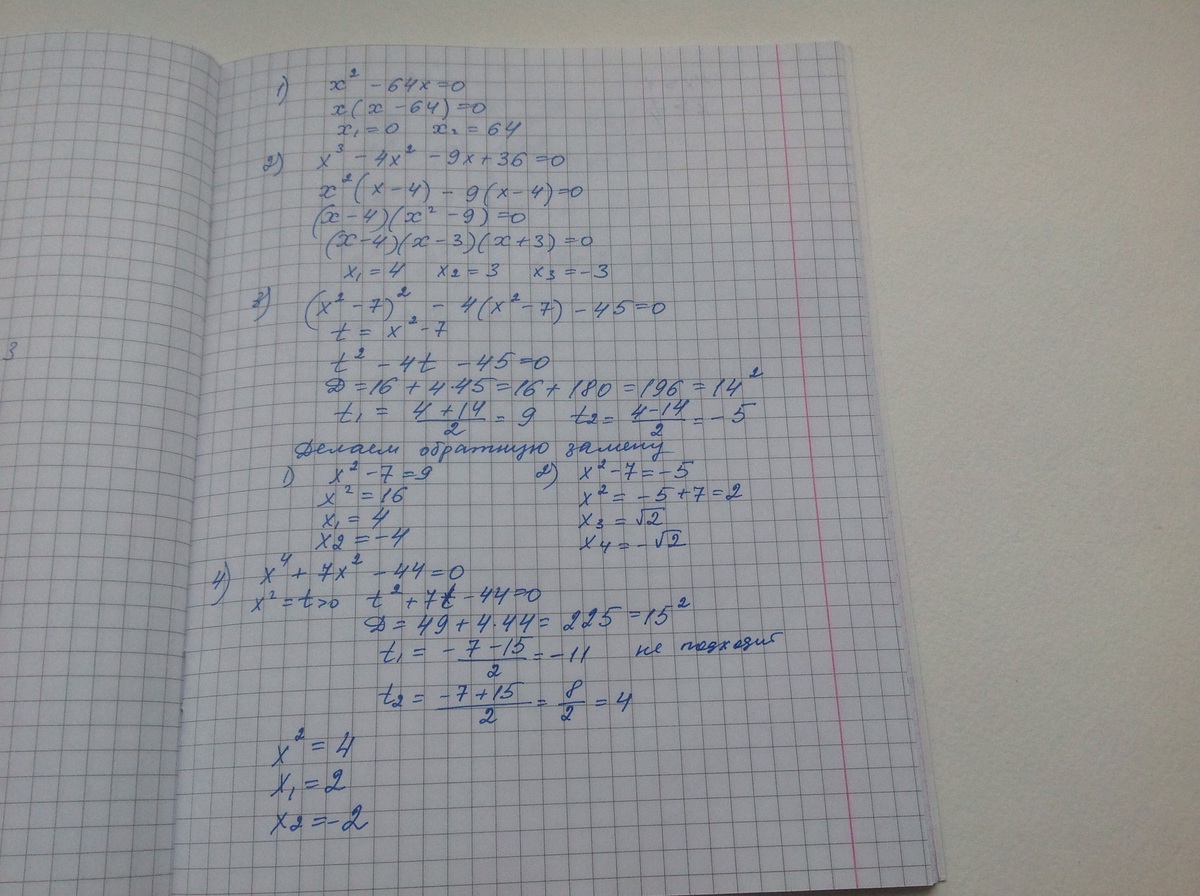 3
1) x² - 64x = 0
x(x - 64) = 0
x₁ = 0 x₂ = 64
2) x³ - 4x² - 9x + 36 = 0
x²(x - 4) - 9(x - 4) = 0
(x - 4)(x² - 9) = 0
(x - 4)(x - 3)(x + 3) = 0
x₁ = 4 x₂ = 3 x₃ = -3
3) (x² - 7)² - 4(x² - 7) - 45 = 0
t = x² - 7
t² - 4t - 45 = 0
D = 16 + 4·45 = 16 + 180 = 196 = 14²
t₁ = (4 + 14)/2 = 9 t₂ = (4 - 14)/2 = -5
Делаем обратную замену
1) x² - 7 = 9 2) x² - 7 = -5
x² = 16 x² = -5 + 7 = 2
x₁ = 4 x₃ = √2
x₂ = -4 x₄ = -√2
4) x⁴ + 7x² - 44 = 0
x² = t > 0 t² + 7t - 44 = 0
D = 49 + 4·44 = 225 = 15²
t₁ = -(7 - 15)/2 = -11 не подходит
t₂ = (-7 + 15)/2 = 8/2 = 4
x² = 4
x₁ = 2
x₂ = -2